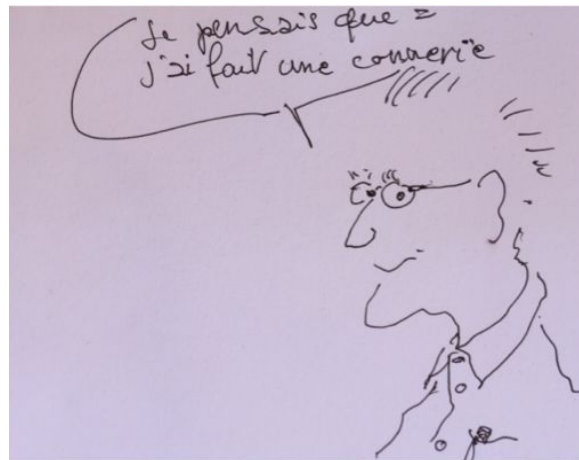 Je pensais que =
j'ai fait une connerie